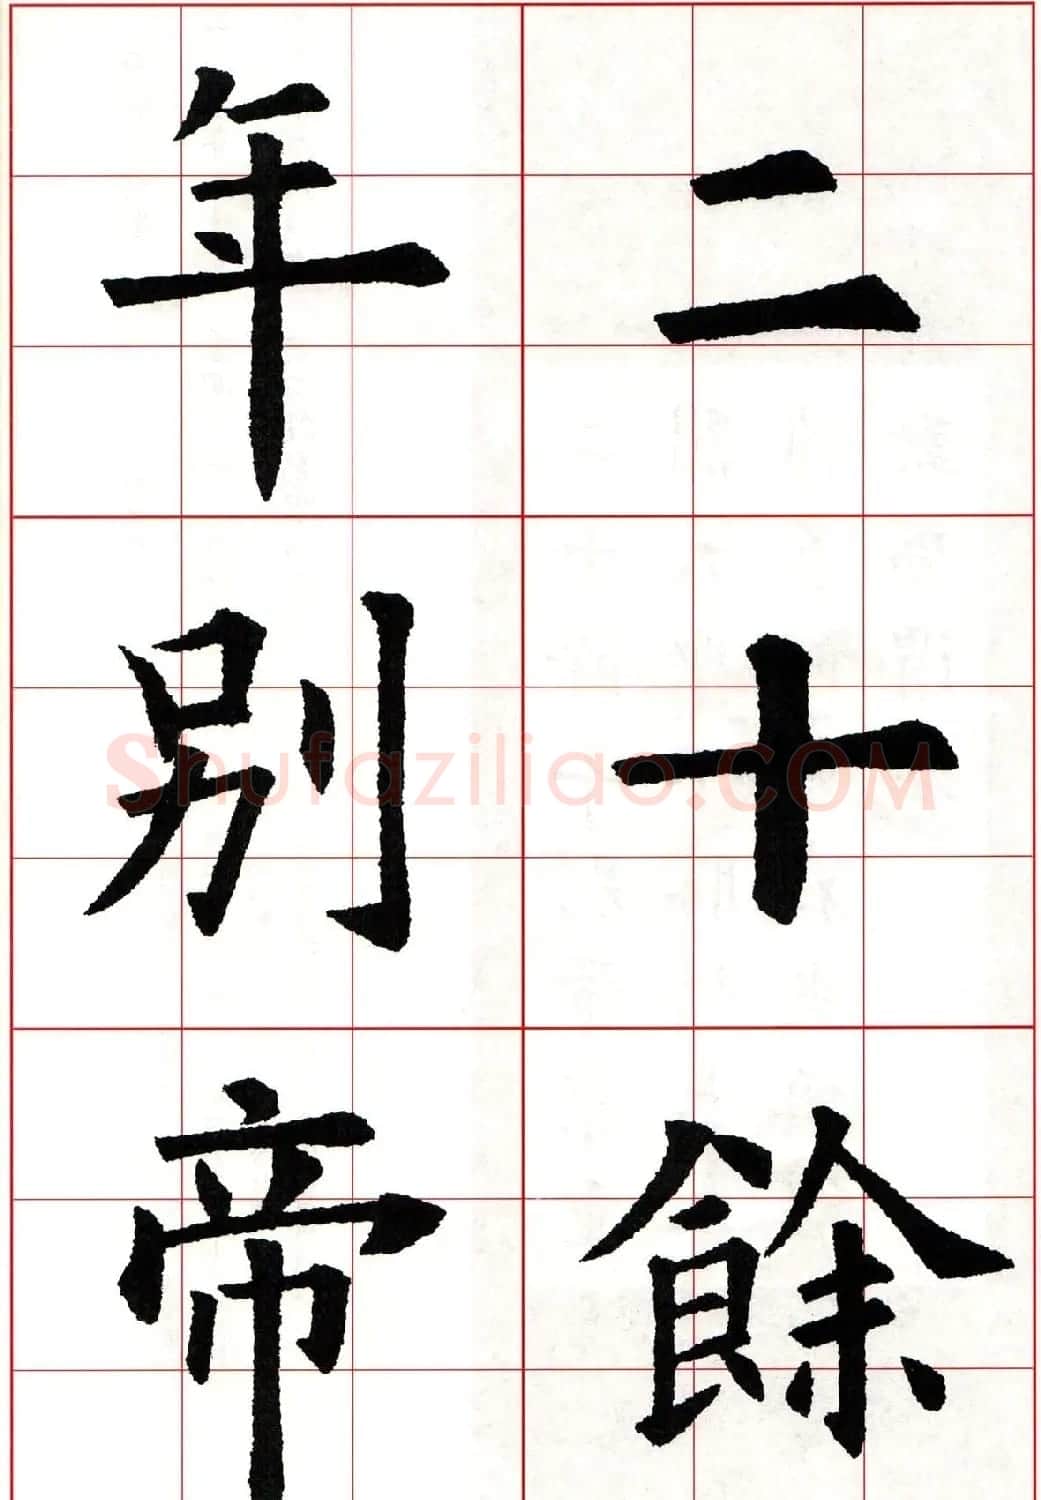 二十餘
年別帝
Shufaziliao.COM